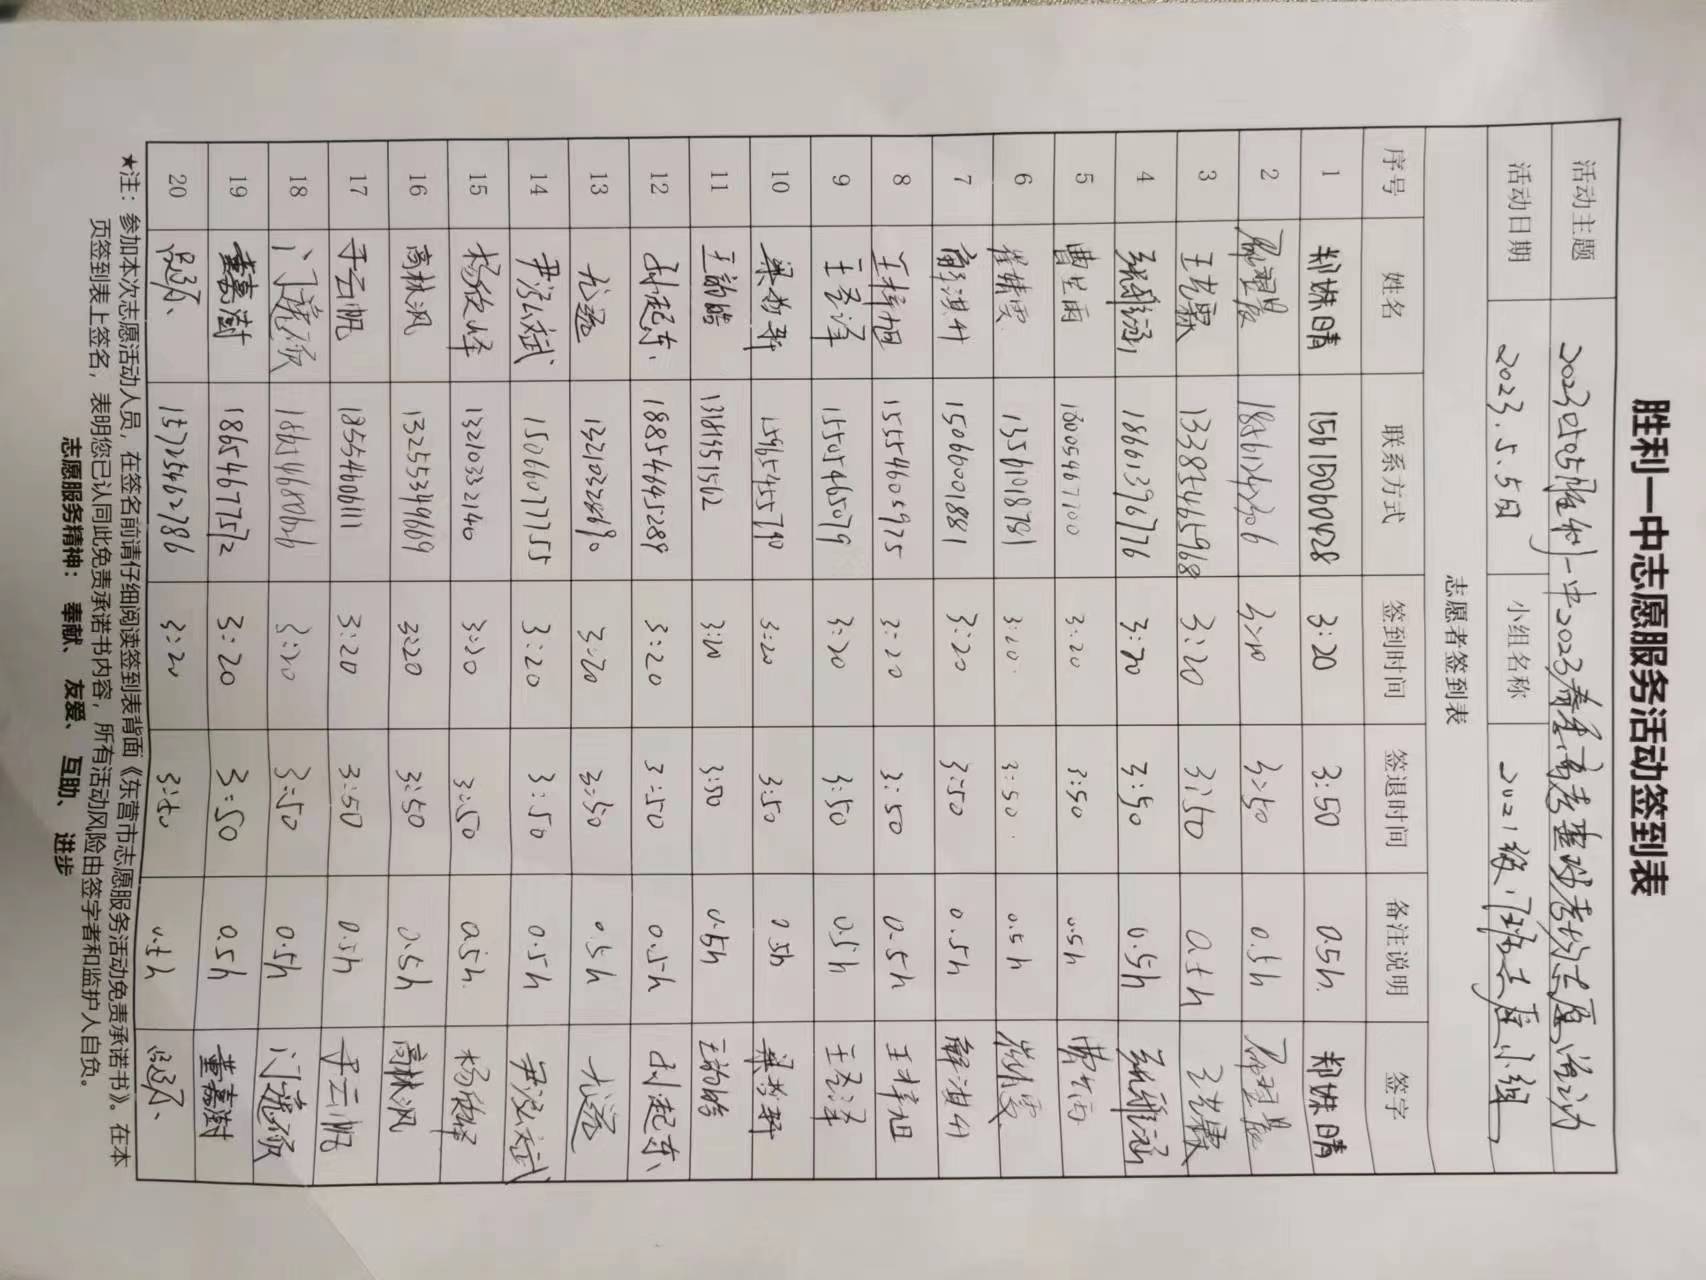 胜利一中志愿服务活动签到表
活动主题 20230505胜利一中2023春季高考查验考场志愿活动
活动日期 2023.5.5日 小组名称 2021级 小组
志愿者签到表
序号 姓名 联系方式 签到时间 签退时间 备注说明 签字
1 郑姝晴 15615060428 3:20 3:50 0.5h. 郑姝晴
2 18561242306 3:20 3:50 0.5h
3 王艺霖 13385465968 3:20 3:50 0.5h 王艺霖
4 18661396776 3:20 3:50 0.5h
5 曹芸雨 18005467700 3:20 3:50 0.5h 曹芸雨
6 崔婧雯 13561018781 3:20 3:50 0.5h 崔婧雯
7 解淇升 15066001881 3:20 3:50 0.5h 解淇升
8 王梓旭 15554605975 3:20 3:50 0.5h 王梓旭
9 15505465079 3:20 3:50 0.5h
10 15965455740 3:20 3:50 0.5h
11 王韵皓 13181551562 3:20 3:50 0.5h 王韵皓
12 18854645289 3:20 3:50 0.5h
13 尤逸 3:20 3:50 0.5h 尤逸
14 尹泓斌 15066077755 3:20 3:50 0.5h 尹泓斌
15 13210332140 3:20 3:50 0.5h.
16 高林沨 13255349669 3:20 3:50 0.5h 高林沨
17 于云帆 18554606111 3:20 3:50 0.5h 于云帆
18 18654680626 3:20 3:50 0.5h
19 董嘉澍 18654677572 3:20 3:50 0.5h 董嘉澍
20 15725462786 3:20 3:50 0.5h
★注：参加本次志愿活动人员，在签名前请仔细阅读签到表背面《东营市志愿服务活动免责承诺书》。在本
页签到表上签名，表明您已认同此免责承诺书内容，所有活动风险由签字者和监护人自负。
志愿服务精神：奉献、友爱、互助、进步